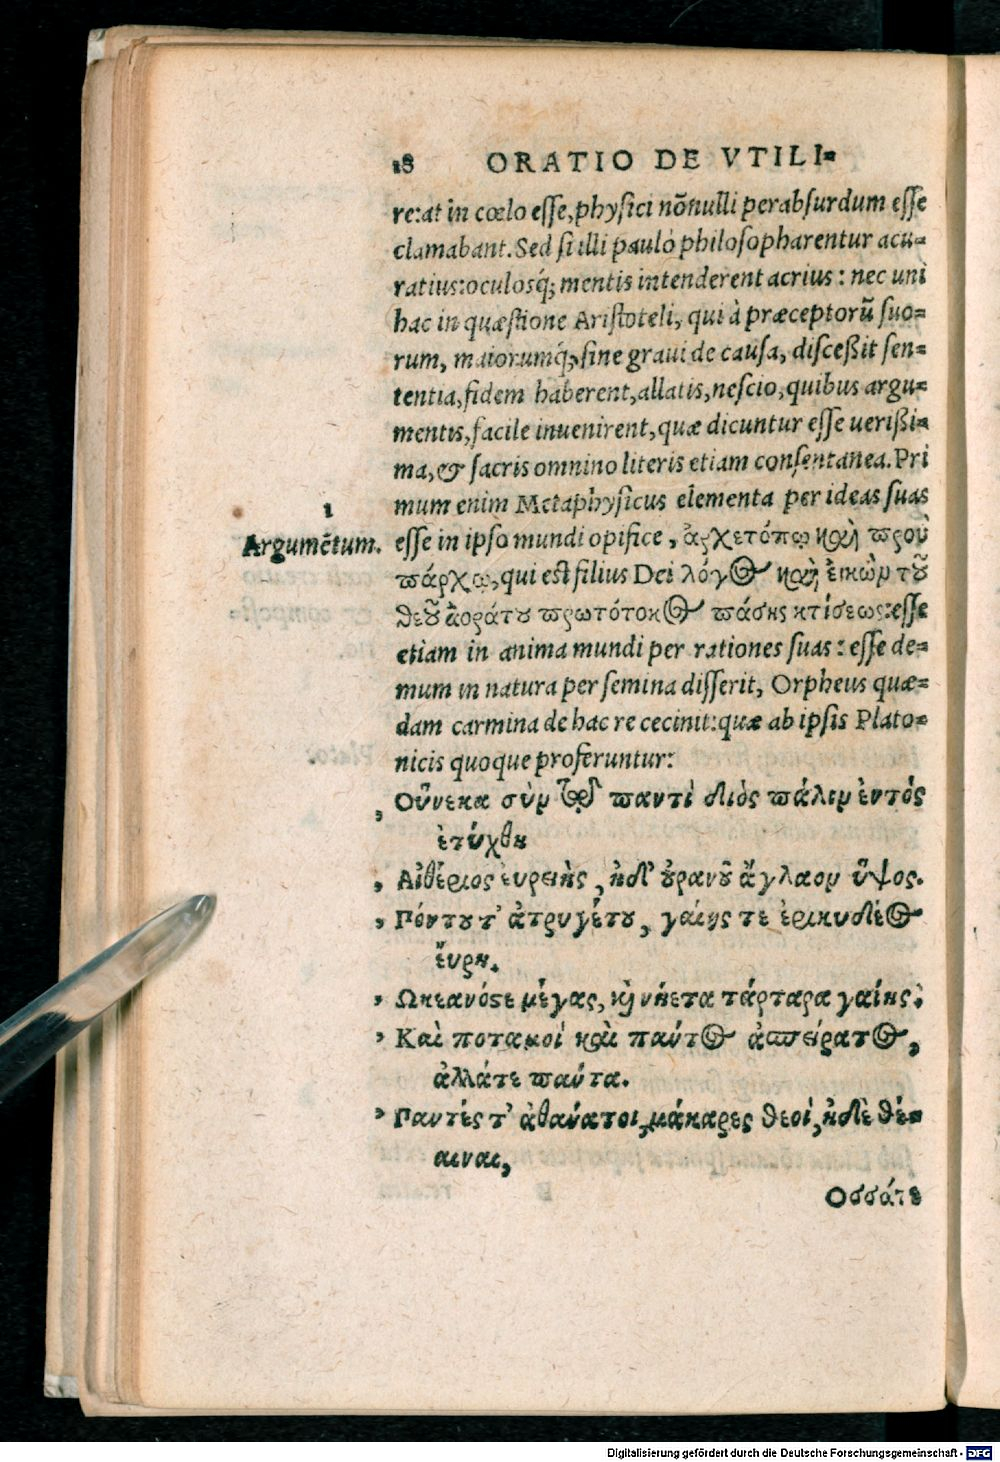 18 ORATIO DE VTILI=
re:at in cœlo esse,physici nõnulli perabsurdum esse
clamabant. Sed si illi paulò philosopharentur acu=
ratius:oculosq́; mentis intenderent acrius: nec uni
hac in quæstione Aristoteli, qui à præceptorũ suo=
rum, maiorumq́;,sine graui de causa, disceßit sen=
tentia,fidem haberent,allatis,nescio,quibus argu=
mentis,facile inuenirent,quæ dicuntur esse uerißi=
ma,& sacris omnino literis etiam consentanea.Pri
mum enim Metaphysicus elementa per ideas suas
1
Argumẽtum.
esse in ipso mundi opifice, ἀρχετόπῳ καὶ προϋ
πάρχῳ,qui est filius Dei λόγος καὶ ἐικὼν τοῦ
θεοῦ ἀοράτου πρωτότοκος πάσης κτίσεως:esse
etiam in anima mundi per rationes suas: esse de=
mum in natura per semina disserit, Orpheus quæ=
dam carmina de hac re cecinit:quæ ab ipsis Plato=
nicis quoque proferuntur:
, Οὕνεκα σὺν τῷ παντὶ διὸς πάλιν ἐντός
ἐτύχθη
, Αἰθέριος ἐυρείης, ἠδ' οὐρανοῦ ἄγλαον ὕψος.
, Γόντου τ' ἀτρυγέτου, γαίης τε ἐρικυδέος
ἔυρη.
, Ωκεανόστε μέγας, καὶ νήετα τάρταρα γαίης:
, Καὶ ποταμοί καὶ παύτος ἀπείρατος,
ἀλλάτε παύτα.
, Γαντές τ' ἀθανάτοι,μάκαρες θεοί,ἠδὲ θέ=
αιναι,
Οσσάτε
Digitalisierung gefördert durch die Deutsche Forschungsgemeinschaft - DFG